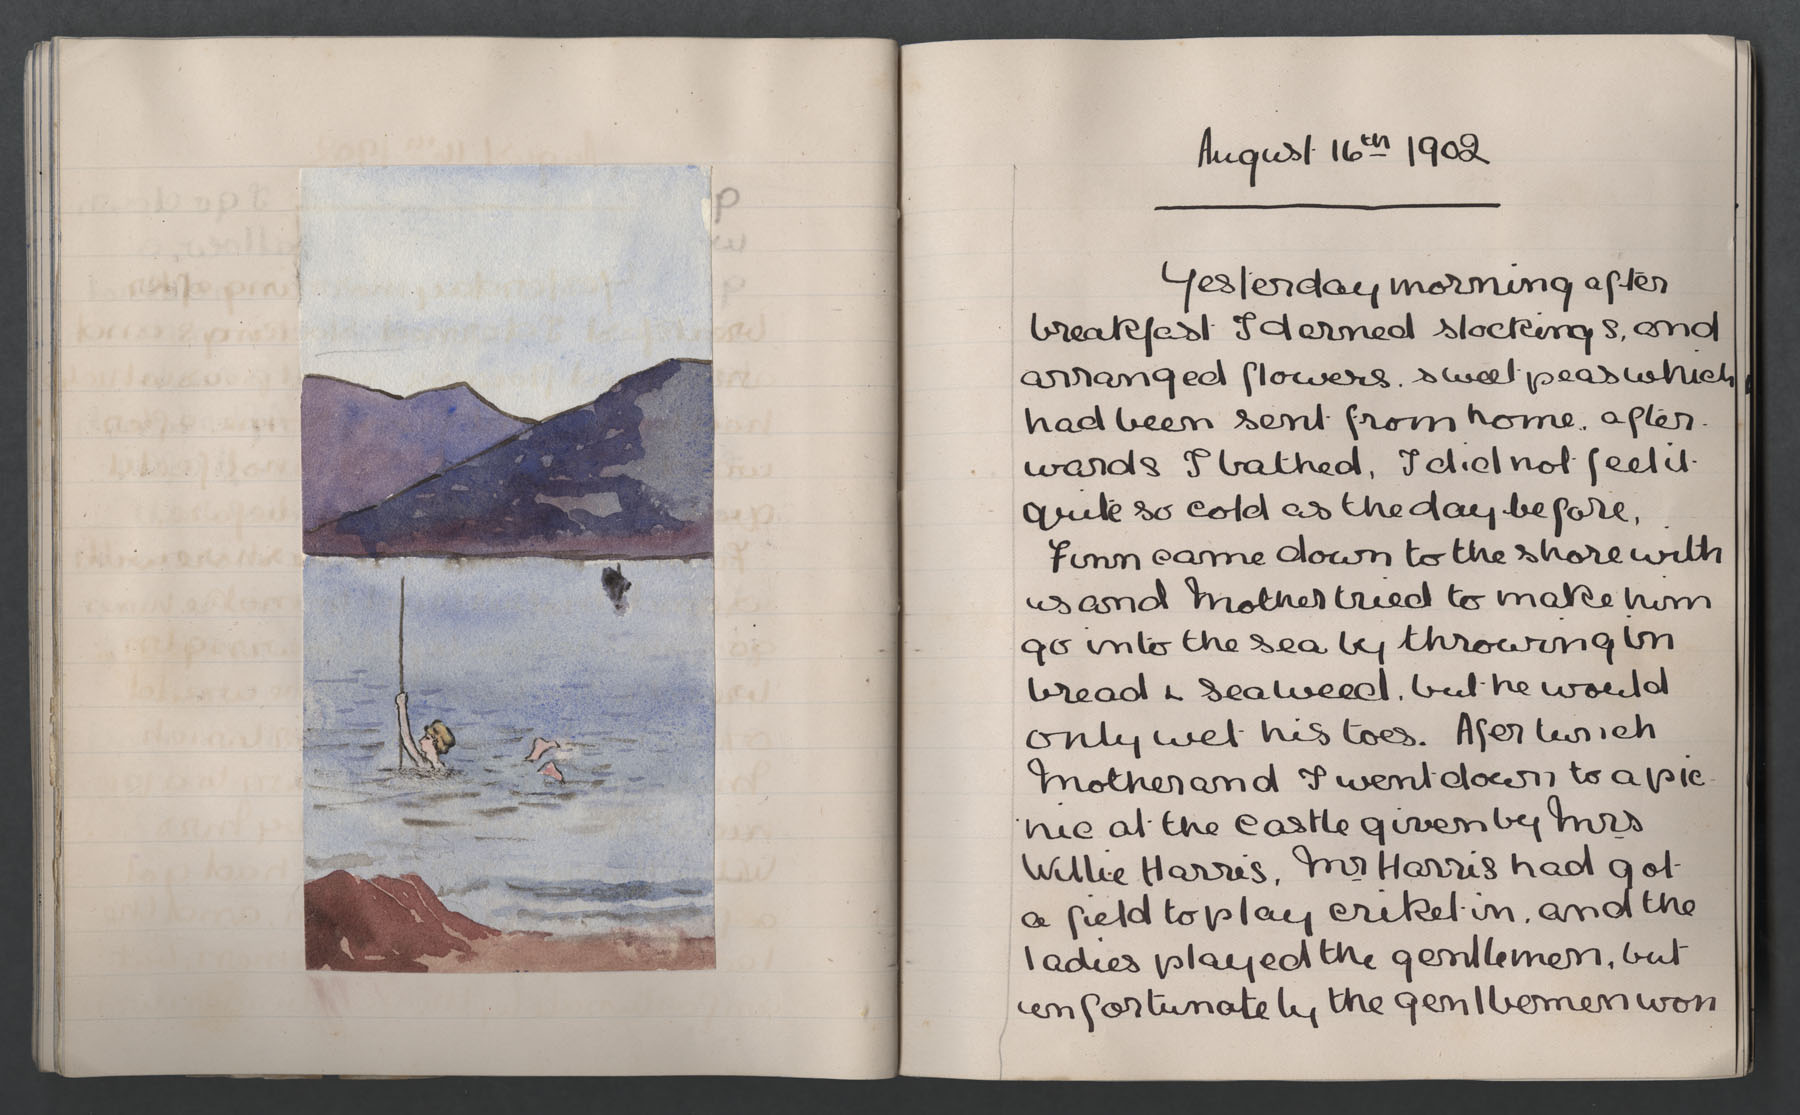 August 16th 1902
Yesterday morning after
breakfast I darned stockings, and
arranged flowers. sweet peas which
had been sent from home. after-
wards I bathed, I did not feel it
quite so cold as the day before,
Finn came down to the shore with
us and Mother tried to make him
go into the sea by throwing in
bread & seaweed, but he would
only wet his toes. Afer lunch
Mother and I went down to a pic-
nic at the castle given by Mrs
Willie Harris, Mr Harris had got
a field to play criket in, and the
ladies played the gentlemen, but
unfortunately the gentlemen won